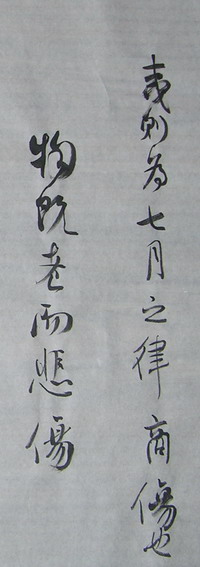 夷則為七月之律商傷也
物既老而悲傷